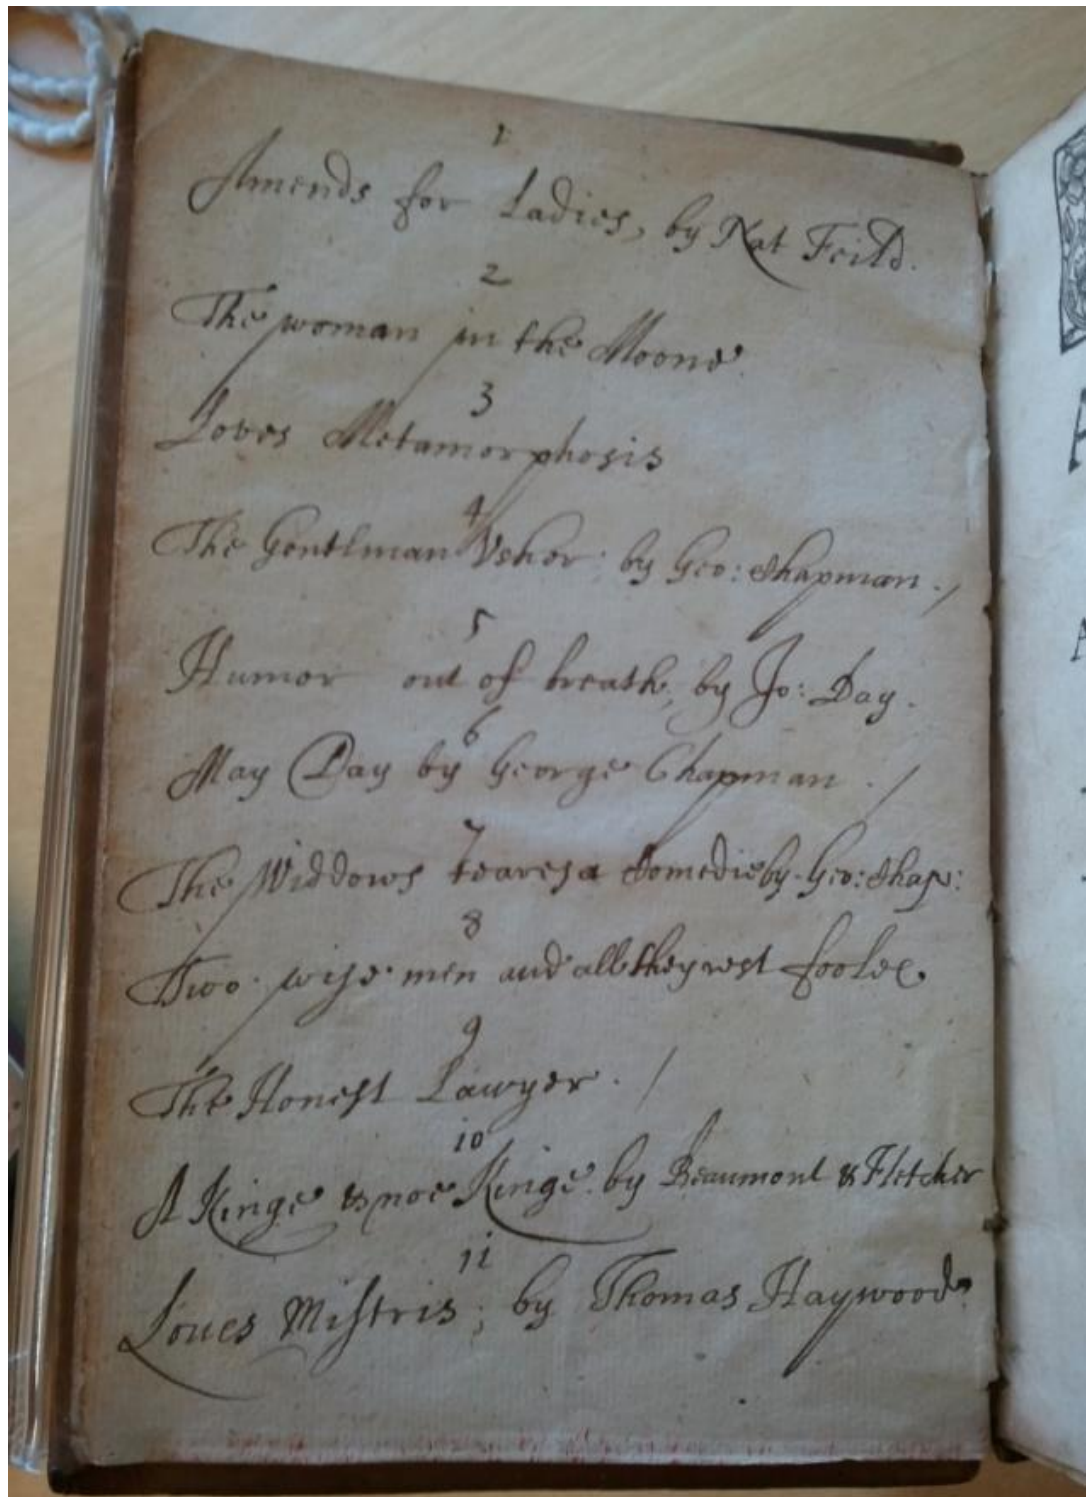 1
Amends for Ladies, by Nat Feild.
2
The woman in the Moone.
3
Loves Metamorphosis
4
The Gentlman Vsher by Geo: Chapman ./
5
Humor out of breath, by Jo: Day.
6
May Day by George Chapman ./
7
The Widdows teares a Comedie by Geo: Chap:
8
Two wise men and all they rest fooles.
9
The Honest Lawyer . /
10
A Kinge & noe Kinge. by Beaumont & Fletcher
11
Loues Mistris; by Thomas Haywood.